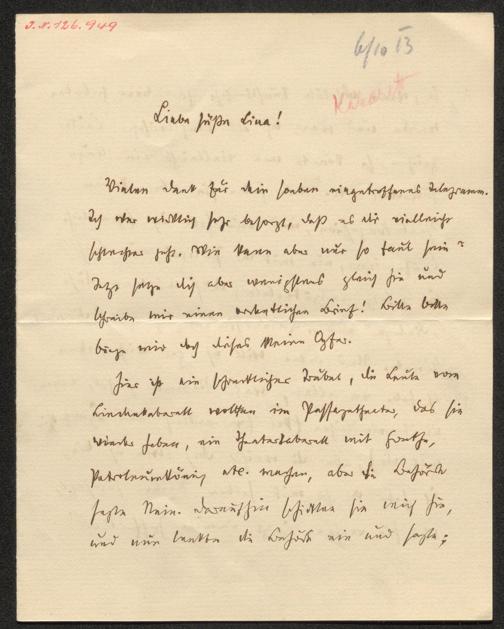 J.N. 126.949
6/10 13
Liebe süße Lina!
Vielen Dank für dein soeben eingetroffenes Telegramm.
Ich war wirklich sehr besorgt, daß es dir vielleicht
schlechter geht. Wie kann man aber nur so faul sein?
Jetzt setze dich aber wenigstens gleich hin und
schreibe mir einen ordentlichen Brief! Bitte bitte
bringe mir doch dieses kleine Opfer.
Hier ist ein schrecklicher Trubel, die Leute vom
Lindenkabarett wollten im Passagetheater, das sie
wieder haben, ein Theaterkabarett mit
Petroleumkönig etc. machen, aber die Behörde
sagte Nein. Daraufhin schickten sie mich hin,
und nun lenkte die Behörde ein und sagte: